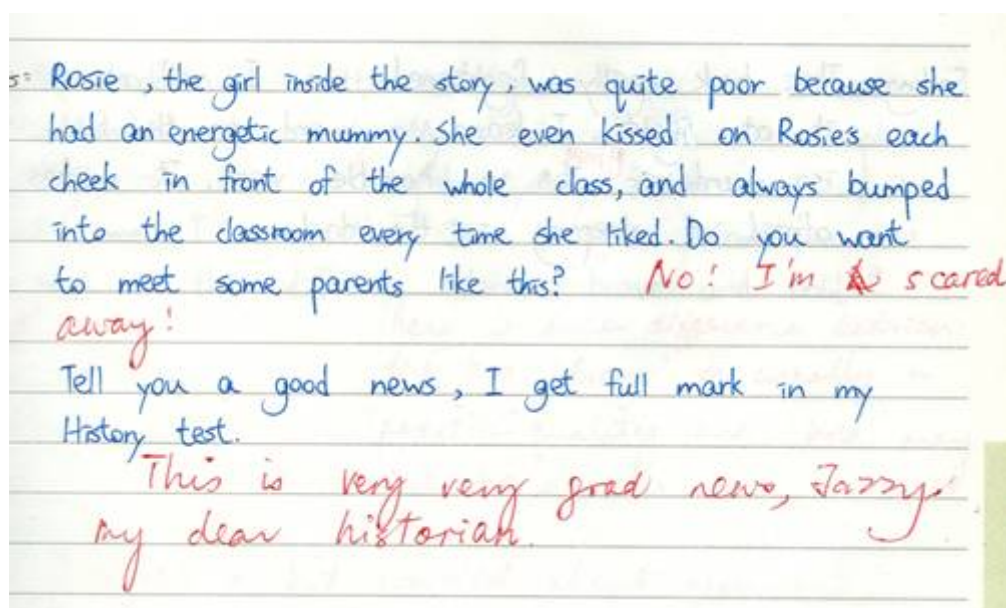 s= Rosie, the girl inside the story, was quite poor because she
had an energetic mummy. She even kissed on Rosie's each
cheek in front of the whole class, and always bumped
into the classroom every time she liked. Do you want
to meet some parents like this? No! I'm scared
away!
Tell you a good news, I get full mark in my
History test.
This is very very good news, Jazzy.
my dear historian.